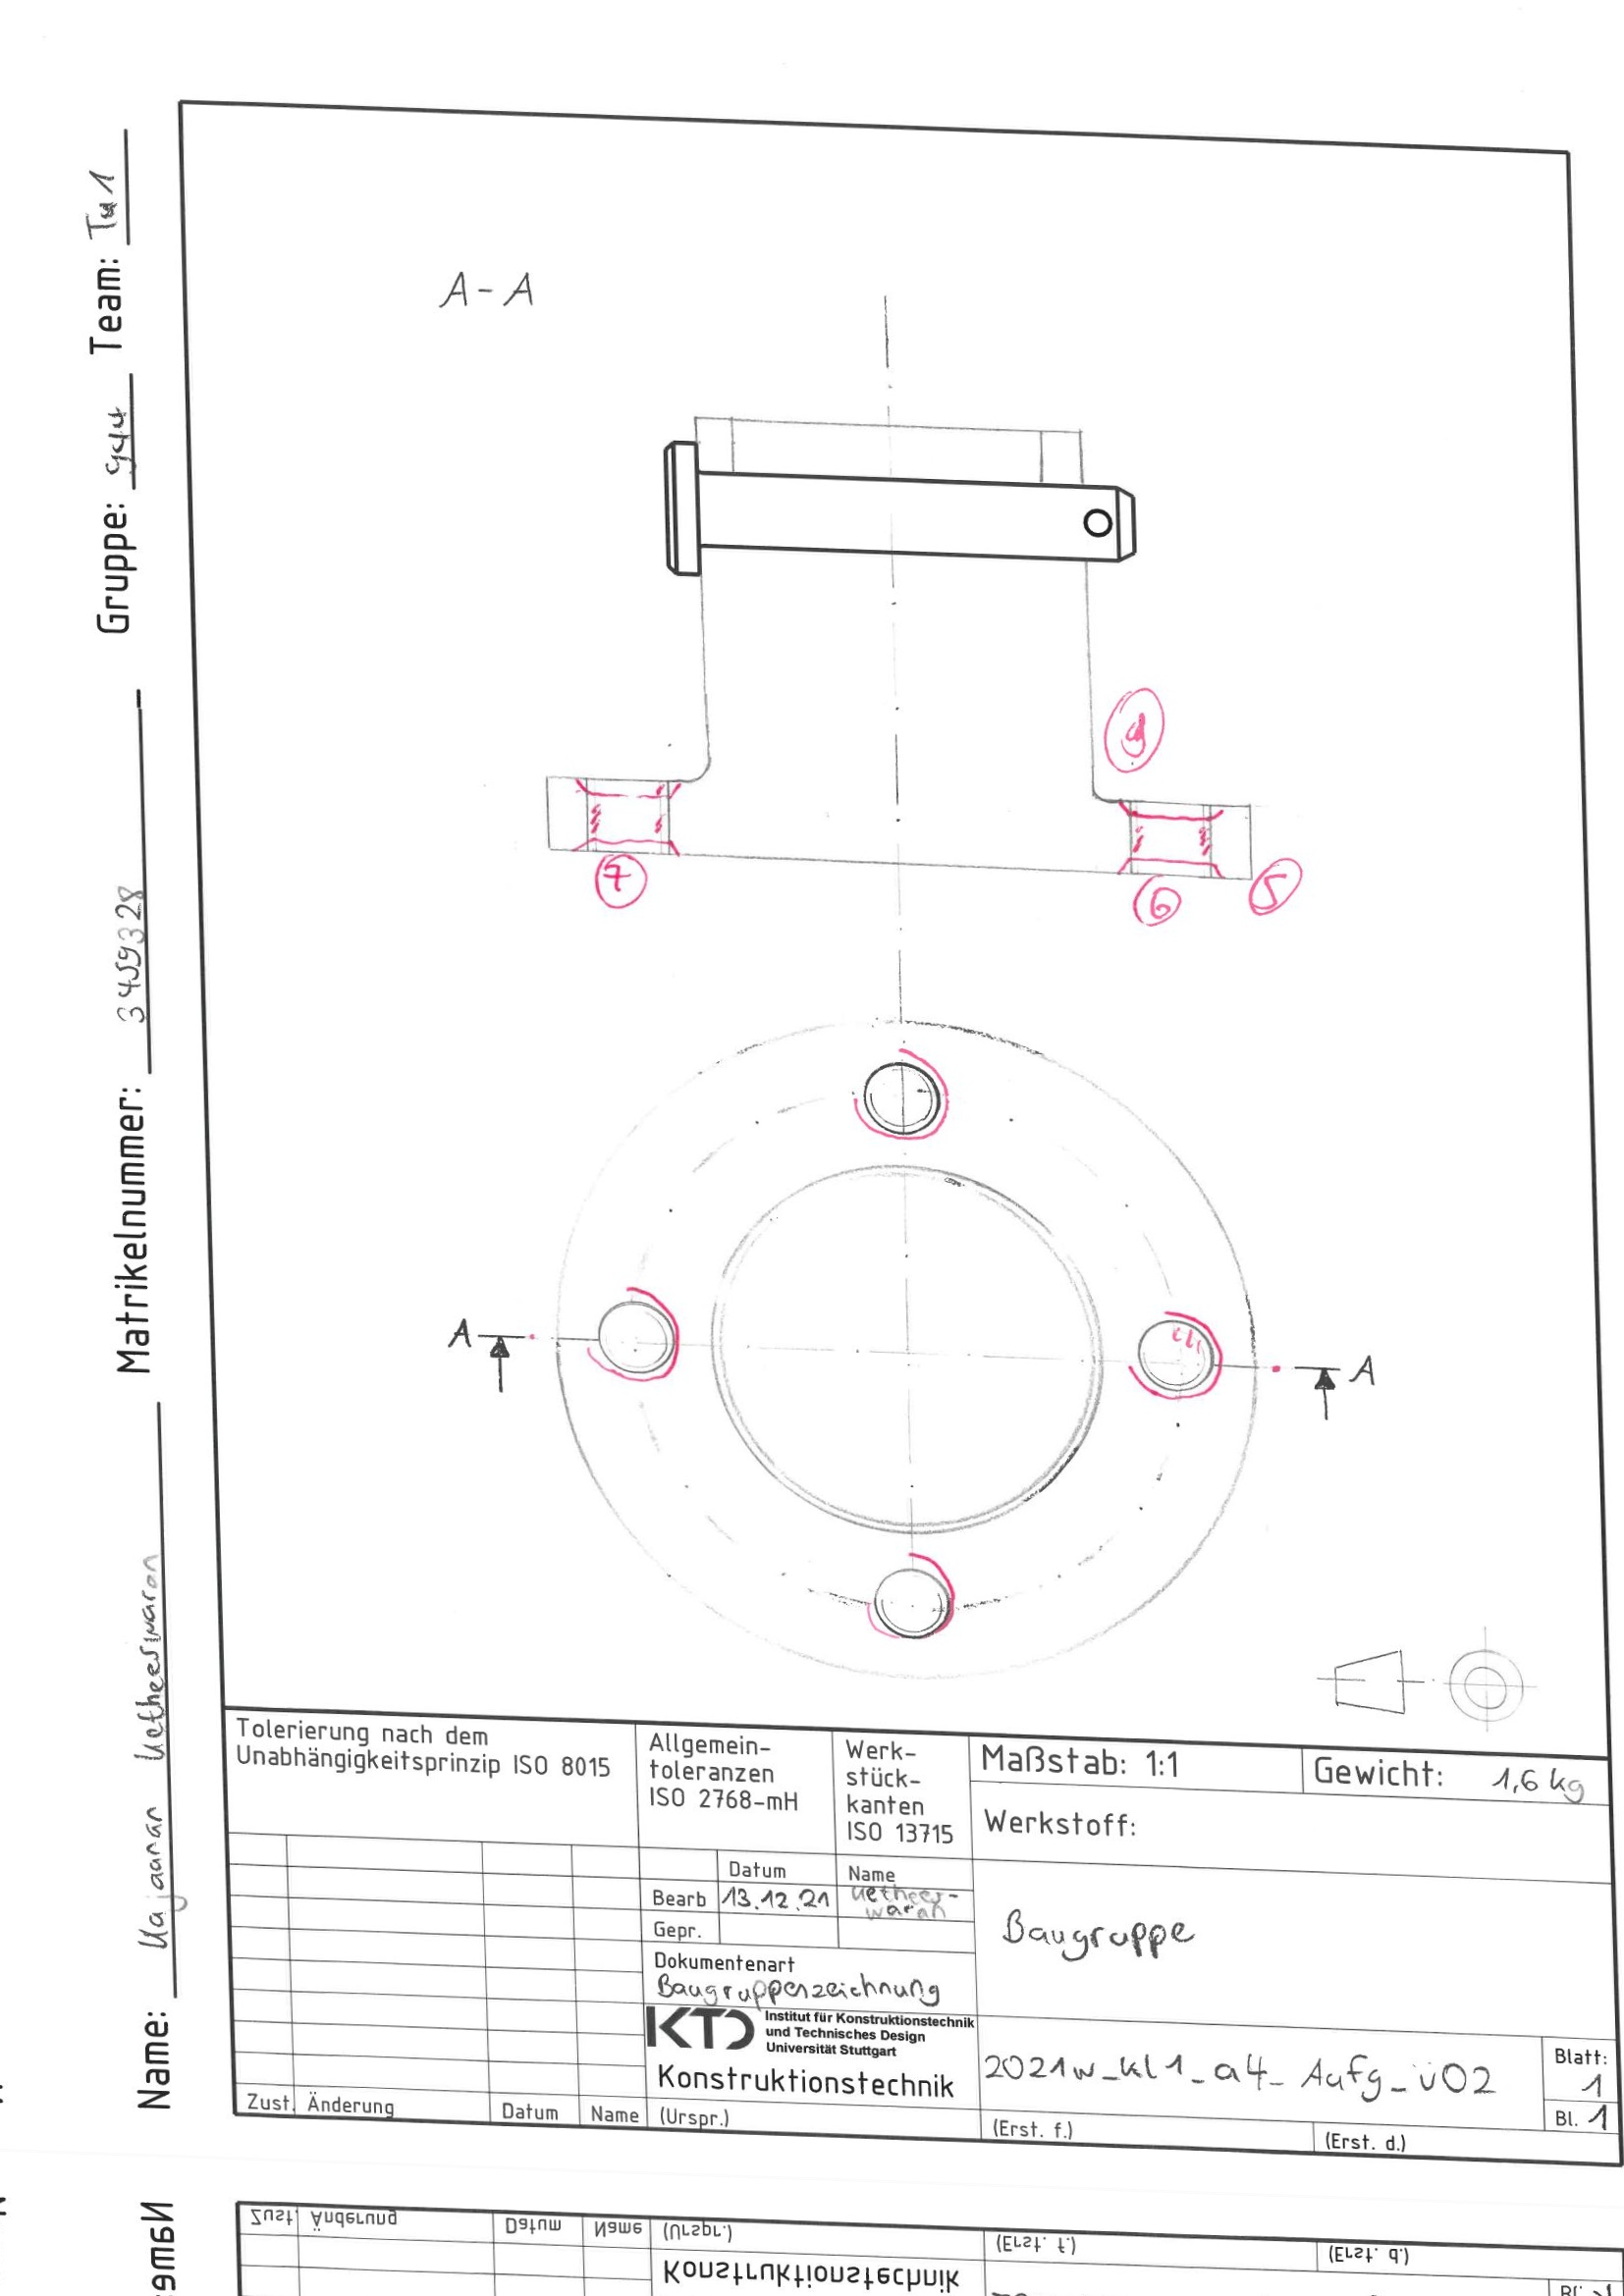 Name: Matrikelnummer: 3459328 Gruppe: Team: Tu1
A-A
9
7
6
5
A
A
Tolerierung nach dem
Unabhängigkeitsprinzip ISO 8015
Allgemein-
toleranzen
ISO 2768-mH
Werk-
stück-
kanten
ISO 13715
Maßstab: 1:1
Gewicht: 1,6 kg
Werkstoff:
Datum
Name
Bearb
13.12.21
Uethees-
waran
Gepr.
Baugruppe
Dokumentenart
Baugruppenzeichnung
KTD
Institut für Konstruktionstechnik
und Technisches Design
Universität Stuttgart
Konstruktionstechnik
2021w_kl1_a4_Aufg_ü02
Blatt:
1
Bl. 1
Zust. Änderung
Datum
Name
(Urspr.)
(Erst. f.)
(Erst. d.)
Zust. Änderung
Datum
Name
(Urspr.)
(Erst. f.)
(Erst. d.)
Konstruktionstechnik
Name